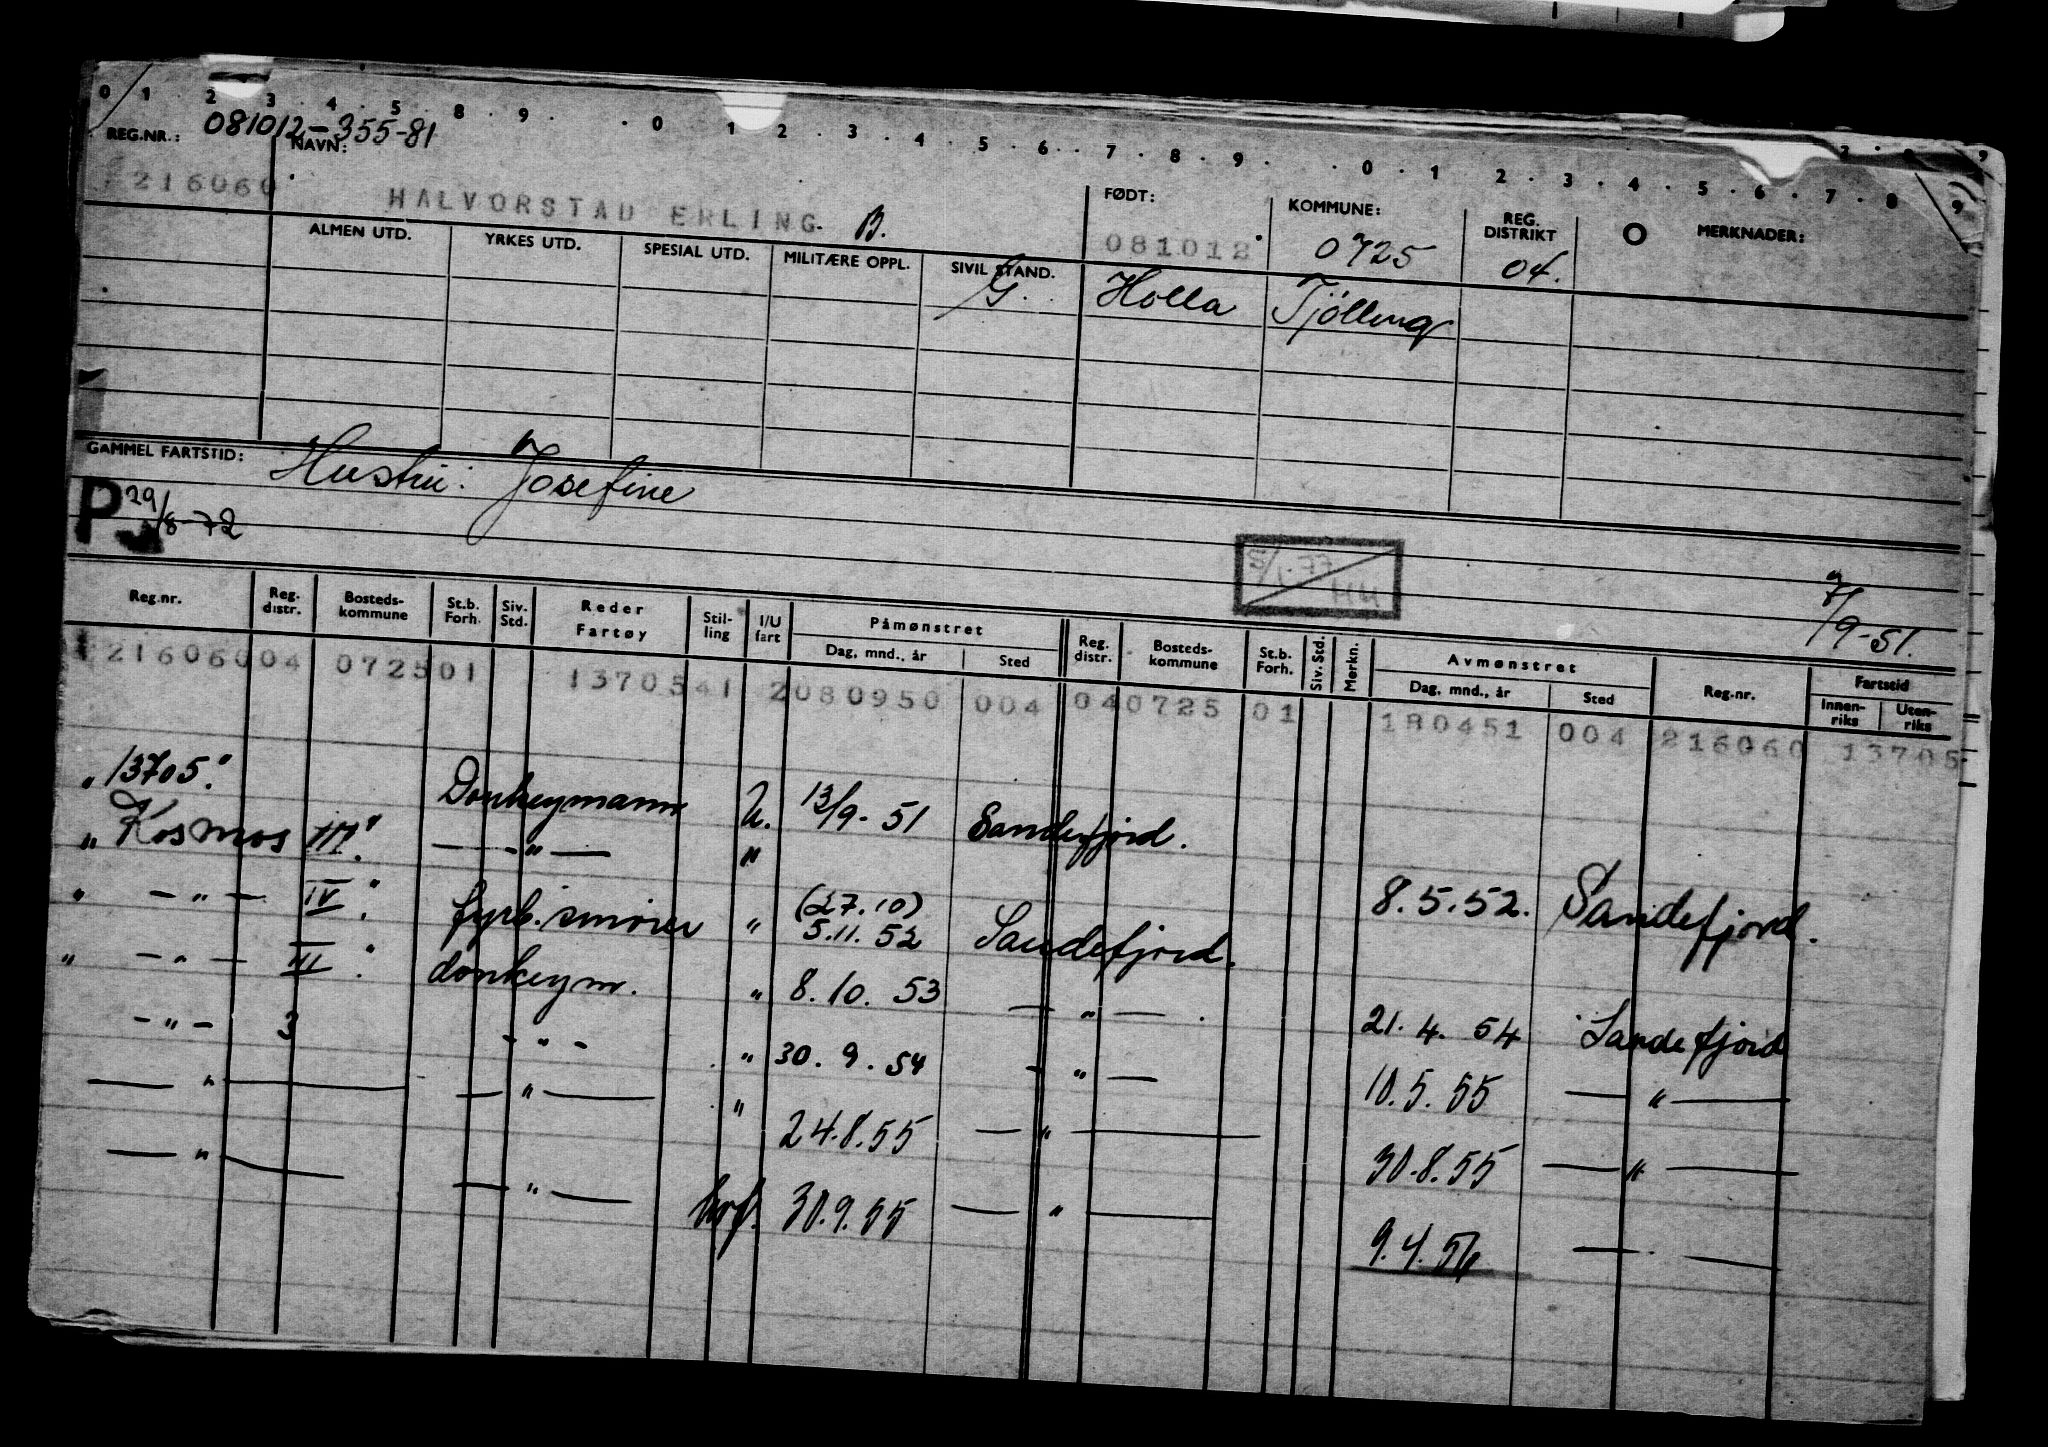 0 1 . 2 . 3 . 4 . 5 . 8 . 9 . . 0 . 1 . 2 . 3 . 4 . 5 . 6 . 7 . 8 . 9 . . 0 . 1 . 2 . 3 . 4 . 5 . 6 . 7 . 8 9
REG.NR.: 081012-355-81 NAVN:
216060 HALVORSTAD ERLING. B.
FØDT: 081012 KOMMUNE: 0725 REG. DISTRIKT 04. O MERKNADER:
ALMEN UTD. YRKES UTD. SPESIAL UTD. MILITÆRE OPPL. SIVIL STAND.
G. Holla Tjølling
GAMMEL FARTSTID: Hustru: Josefine
P 29/8-72
S/1-77
7/9-51.
Reg.nr. Reg. distr. Bosteds-kommune St.b. Forh. Siv. Std. Reder Fartøy Stil-ling I/U fart Påmønstret Dag, mnd., år Sted Reg. distr. Bosteds-kommune St.b. Forh. Siv. Std. Merkn. Avmønstret Dag, mnd., år Sted Reg.nr. Fartstid Innen-riks Uten-riks
216060 04 0725 01 1370541 2 080950 004 04 0725 01 180451 004 216060 13705
"13705." Donkeymann U. 13/9-51 Sandefjord.
"Kosmos III". — " — " 8.5.52. Sandefjord.
" - " - IV". fyrb. smører " (27.10) 5.11.52 Sandefjord.
" - " - III". donkeym. " 8.10.53 — " — . 21.4.54 Sandefjord
- " - 3 - " - " 30.9.54 - " — 10.5.55 — " —
— " — — " — " 24.8.55 — " — 30.8.55 — " —
— " — — " — 30.9.55 — " — 9.4.56 — —